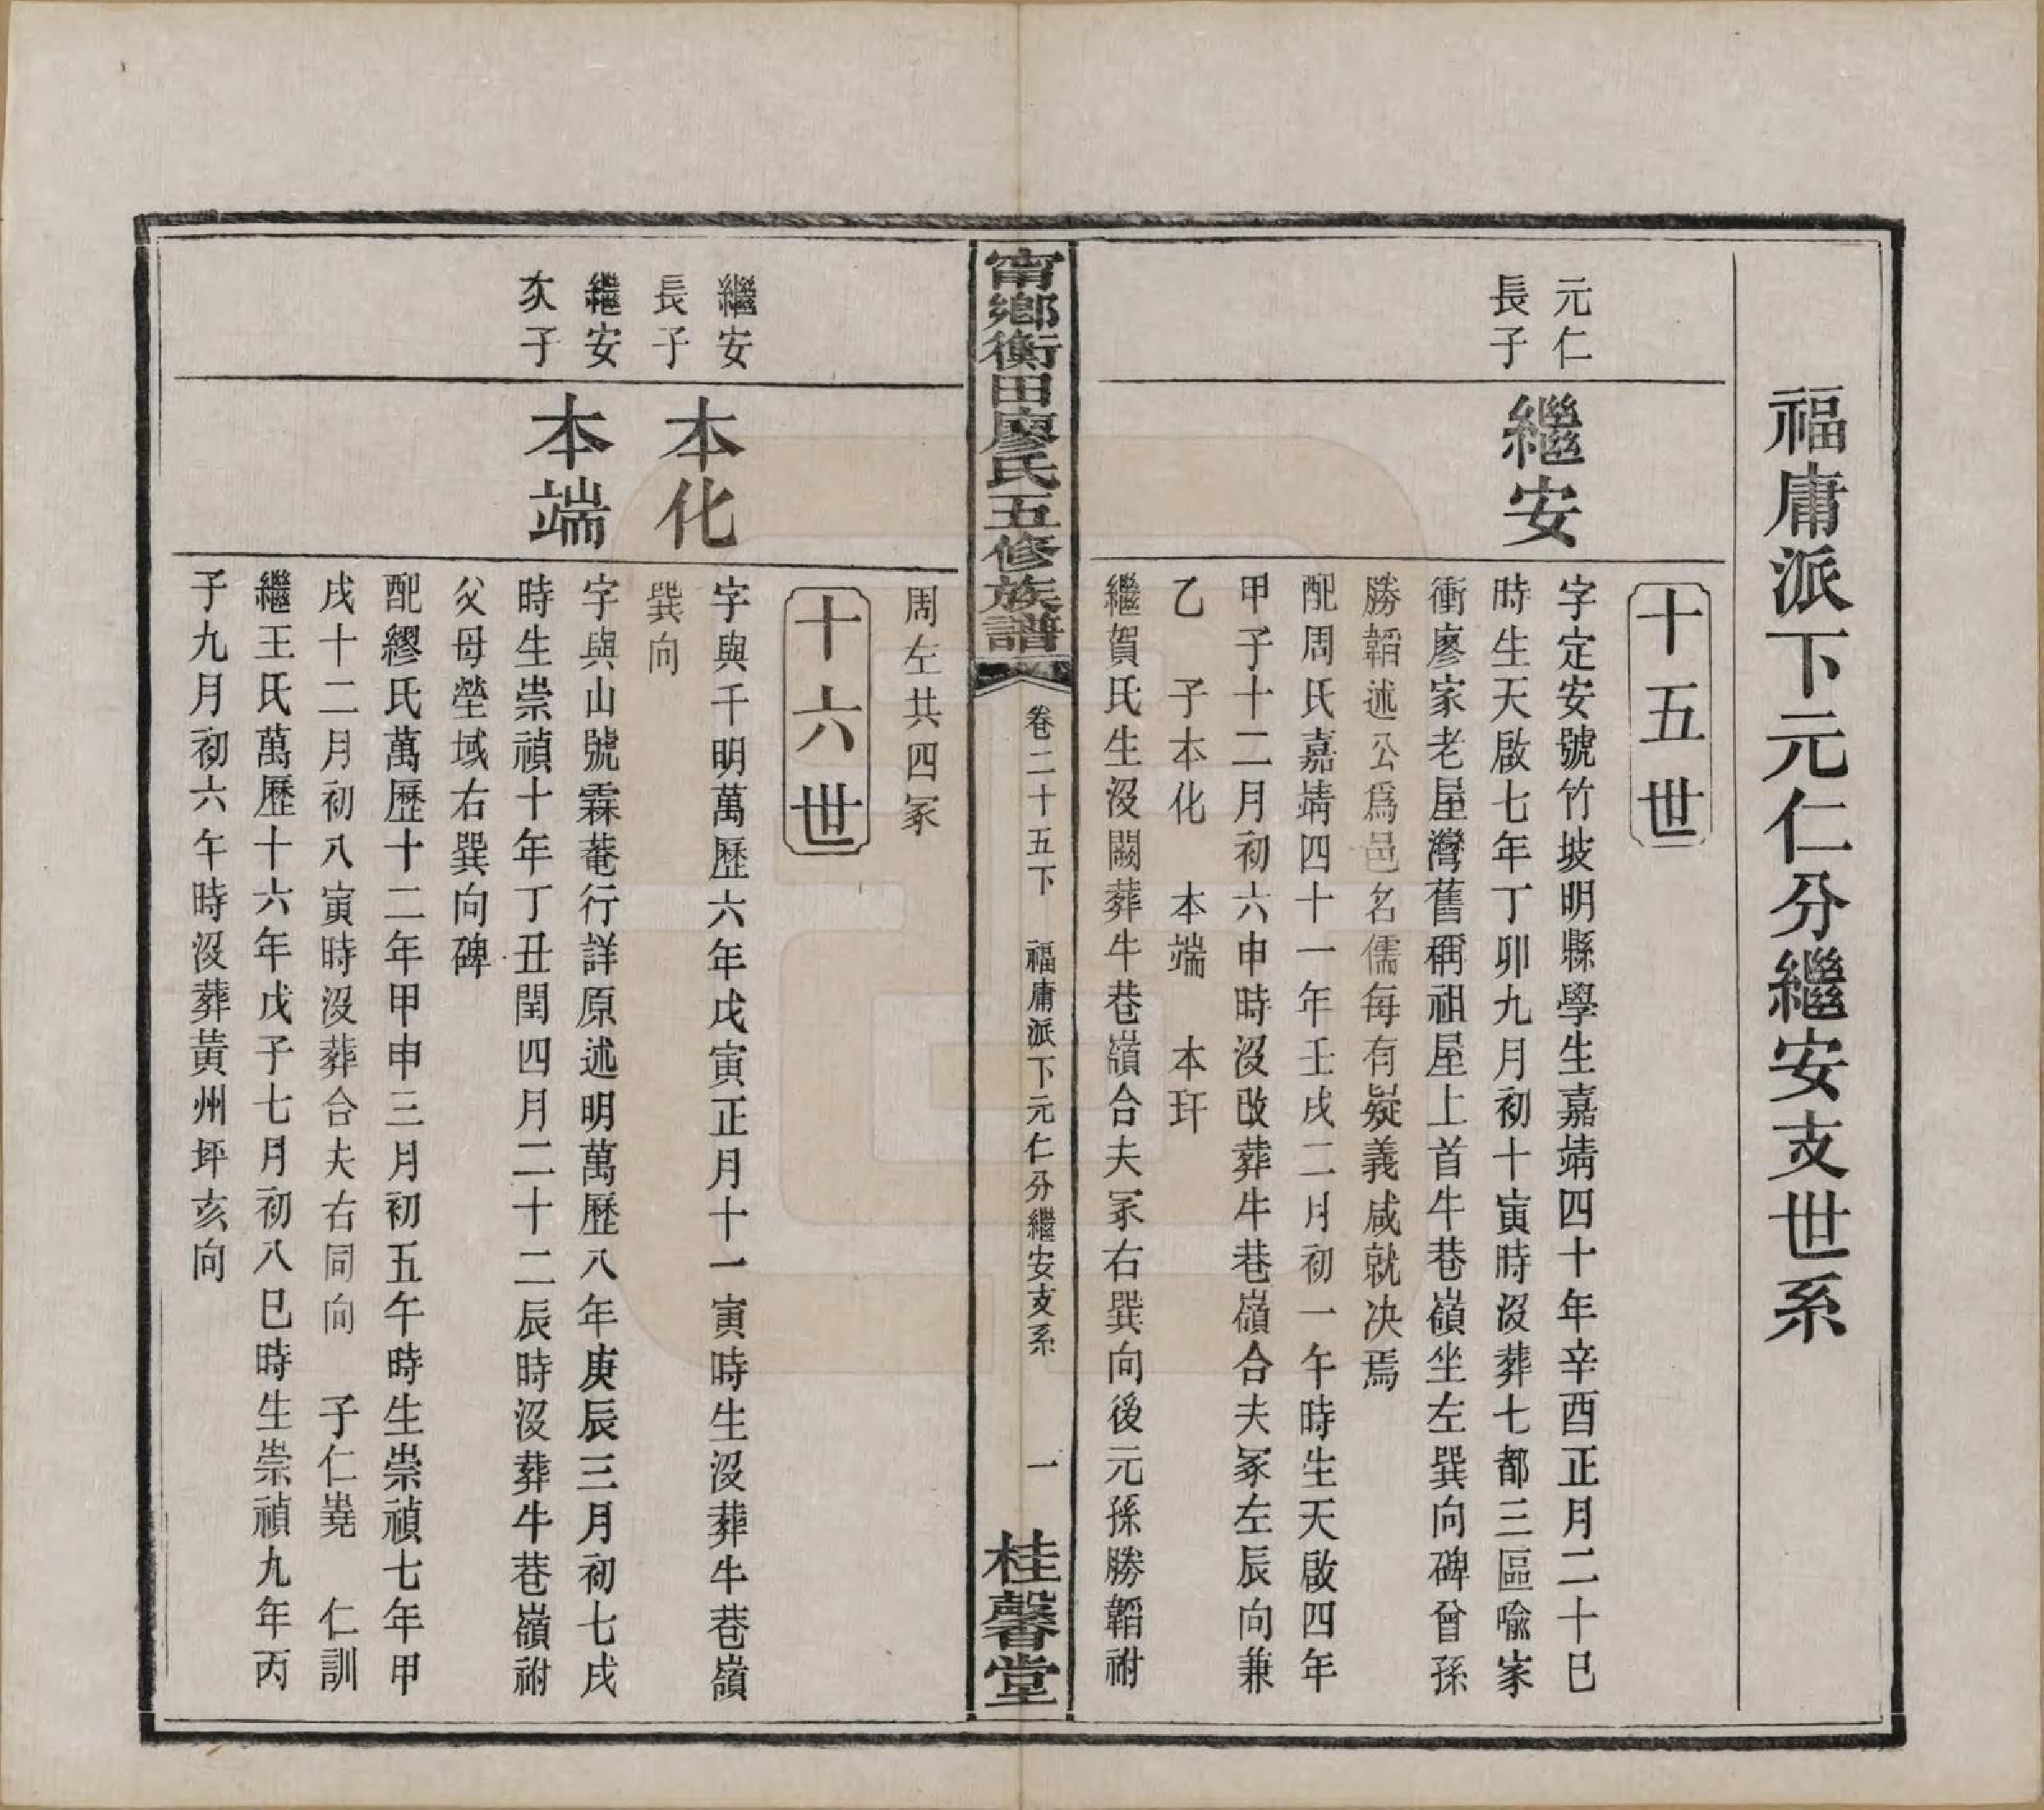 福庸派下元仁分繼安支世系
十五世
元仁
長子
繼安
字定安號竹坡明縣學生嘉靖四十年辛酉正月二十巳
時生天啟七年丁卯九月初十寅時沒葬七都三區喩家
衝廖家老屋灣舊稱祖屋上首牛巷嶺坐左巽向碑曾孫
勝韜述公爲邑名儒每有疑義咸就决焉
配周氏嘉靖四十一年壬戌二月初一午時生天啟四年
甲子十二月初六申時沒改葬牛巷嶺合夫冢左辰向兼
乙　子本化　本端　本玕
繼賀氏生沒闕葬牛巷嶺合夫冢右巽向後元孫勝韜祔
甯鄉衡田廖氏五修族譜
卷二十五下　福庸派下元仁分繼安支系　一
桂馨堂
周左共四冢
十六世
繼安
長子
本化
字與千明萬歷六年戊寅正月十一寅時生沒葬牛巷嶺
巽向
繼安
次子
本端
字與山號霖菴行詳原述明萬歷八年庚辰三月初七戌
時生崇禎十年丁丑閏四月二十二辰時沒葬牛巷嶺祔
父母塋域右巽向碑
配繆氏萬歷十二年甲申三月初五午時生崇禎七年甲
戌十二月初八寅時沒葬合夫右同向　子仁嶤　仁訓
繼王氏萬歷十六年戊子七月初八巳時生崇禎九年丙
子九月初六午時沒葬黃州坪亥向